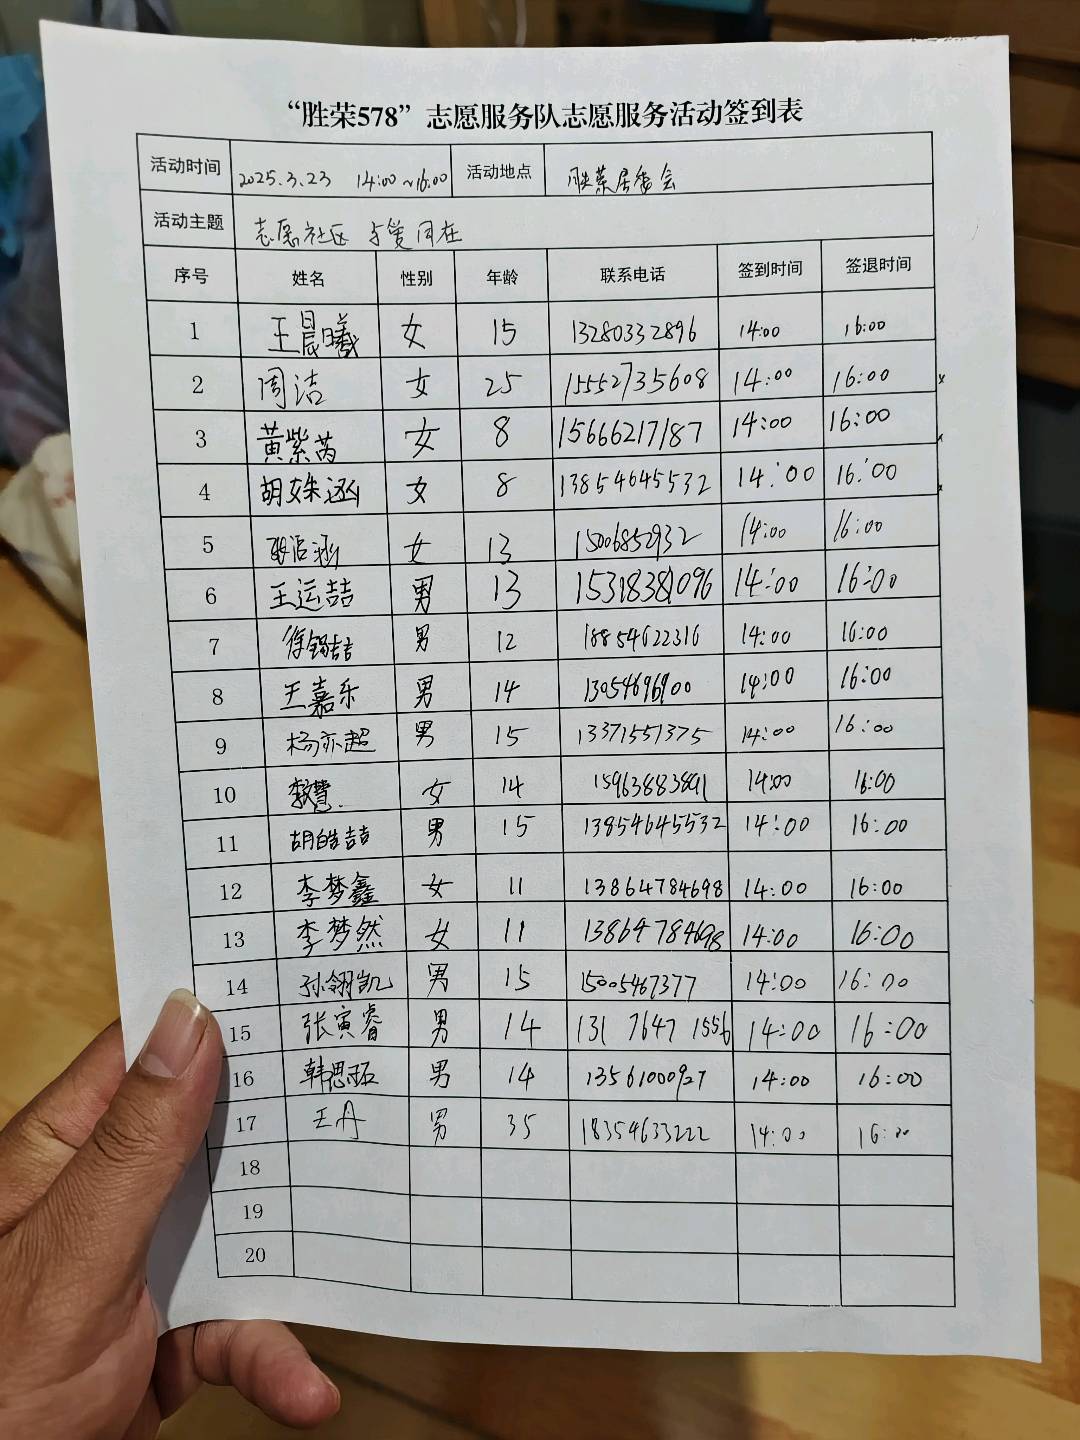 “胜荣578”志愿服务队志愿服务活动签到表
活动时间 2025.3.23 14:00~16:00 活动地点 胜荣居委会
活动主题 志愿社区 与爱同在
序号 姓名 性别 年龄 联系电话 签到时间 签退时间
1 王晨曦 女 15 13280332896 14:00 16:00
2 周洁 女 25 15552735608 14:00 16:00
3 黄紫芮 女 8 15666217187 14:00 16:00
4 胡姝涵 女 8 13854645532 14:00 16:00
5 女 13 15006852932 14:00 16:00
6 王运喆 男 13 15318381096 14:00 16:00
7 男 12 18854622316 14:00 16:00
8 王嘉乐 男 14 13054696900 14:00 16:00
9 杨亦超 男 15 13371551375 14:00 16:00
10 女 14 15963883891 14:00 16:00
11 胡皓喆 男 15 13854645532 14:00 16:00
12 李梦鑫 女 11 13864784698 14:00 16:00
13 李梦然 女 11 13864784698 14:00 16:00
14 孙翎凯 男 15 15005467377 14:00 16:00
15 张寅睿 男 14 131 7647 1556 14:00 16:00
16 韩思珏 男 14 13561000927 14:00 16:00
17 王丹 男 35 18354633222 14:00 16:00
18
19
20